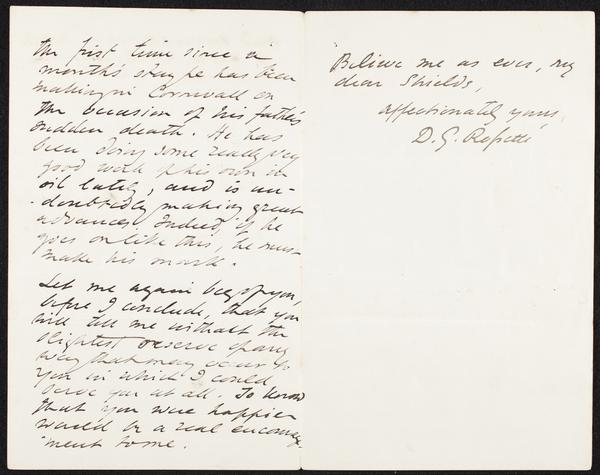 the first time since a
month's stay he has been
making in Cornwall on
the occasion of his father's
sudden death. He has
been doing some really very
good work of his own in
oil lately, and is un-
-doubtedly making great
advances. Indeed, if he
goes on like this, he must
make his mark.
Let me again beg of you,
before I conclude, that you
will tell me without the
slightest reserve of any
way that may occur to
you in which I could
serve you at all. To know
that you were happier
would be a real encourage-
-ment to me.
Believe me as ever, my
dear Shields,
affectionately yours,
D. G. Rossetti